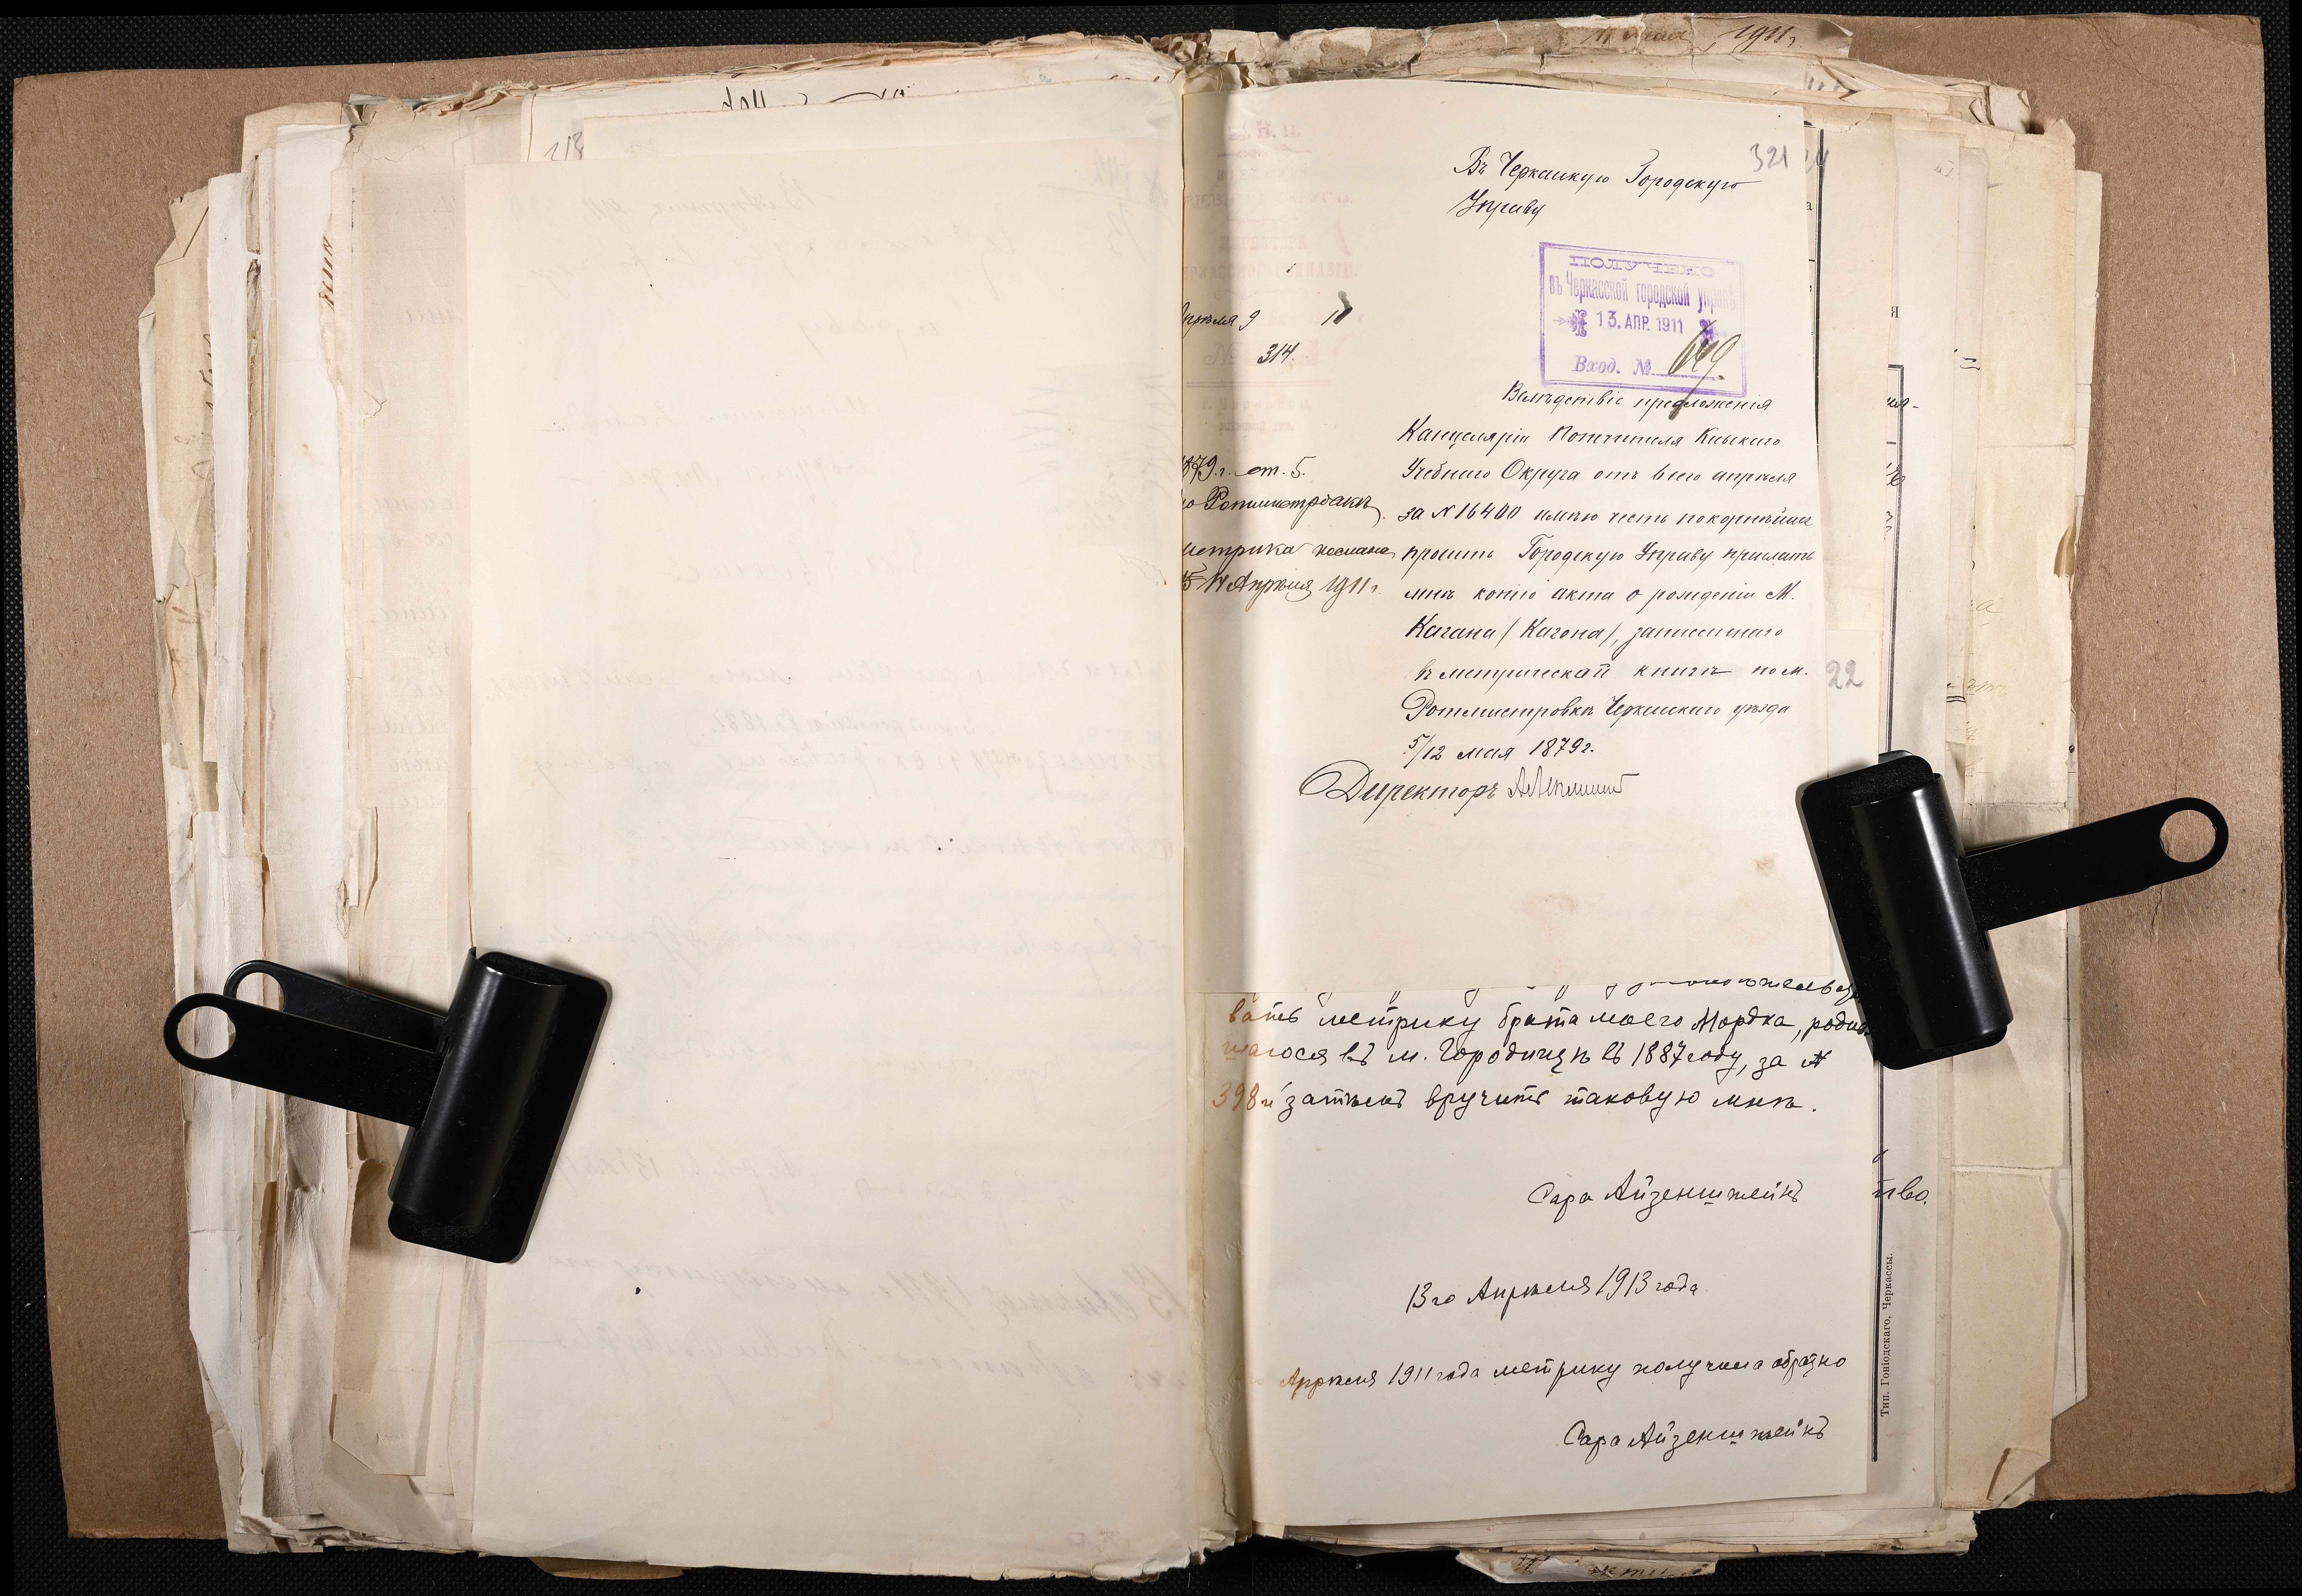 321
Въ Черкасскую Городскую
Управу
въ Черкасской городской управѣ
13. АПР. 1911
Вход. №
Апрѣля 9 11
314.
Вслѣдствіе предложенія
Канцеляріи Попечителя Кіевскаго
Учебнаго Округа отъ 6 сего апрѣля
за N 16400 имѣю честь покорнѣйше
просить Городскую Управу прислать
мнѣ копію акта о рожденіи М.
Кагана / Кагона /, записаннаго
въ метрической книгѣ по м.
Ротмистровкѣ Черкасскаго уѣзда
5/12 мая 1879 г.
Директоръ
1879 г. ст. 5.
по Ротмистровкѣ
метрика послана
14 Апрѣля 1911 г.
22
вать метрику брата моего Мордка, родив
шагося въ м. Городищѣ въ 1887 году, за №
398 и затѣмъ вручить таковую мнѣ.
Сара Айзенштейнъ
13го Апрѣля 1913 года
Апрѣля 1911 года метрику получила обратно
Сара Айзенштейнъ
тво.
Тип. Гоніодскаго, Черкассы.
218
1911 г.